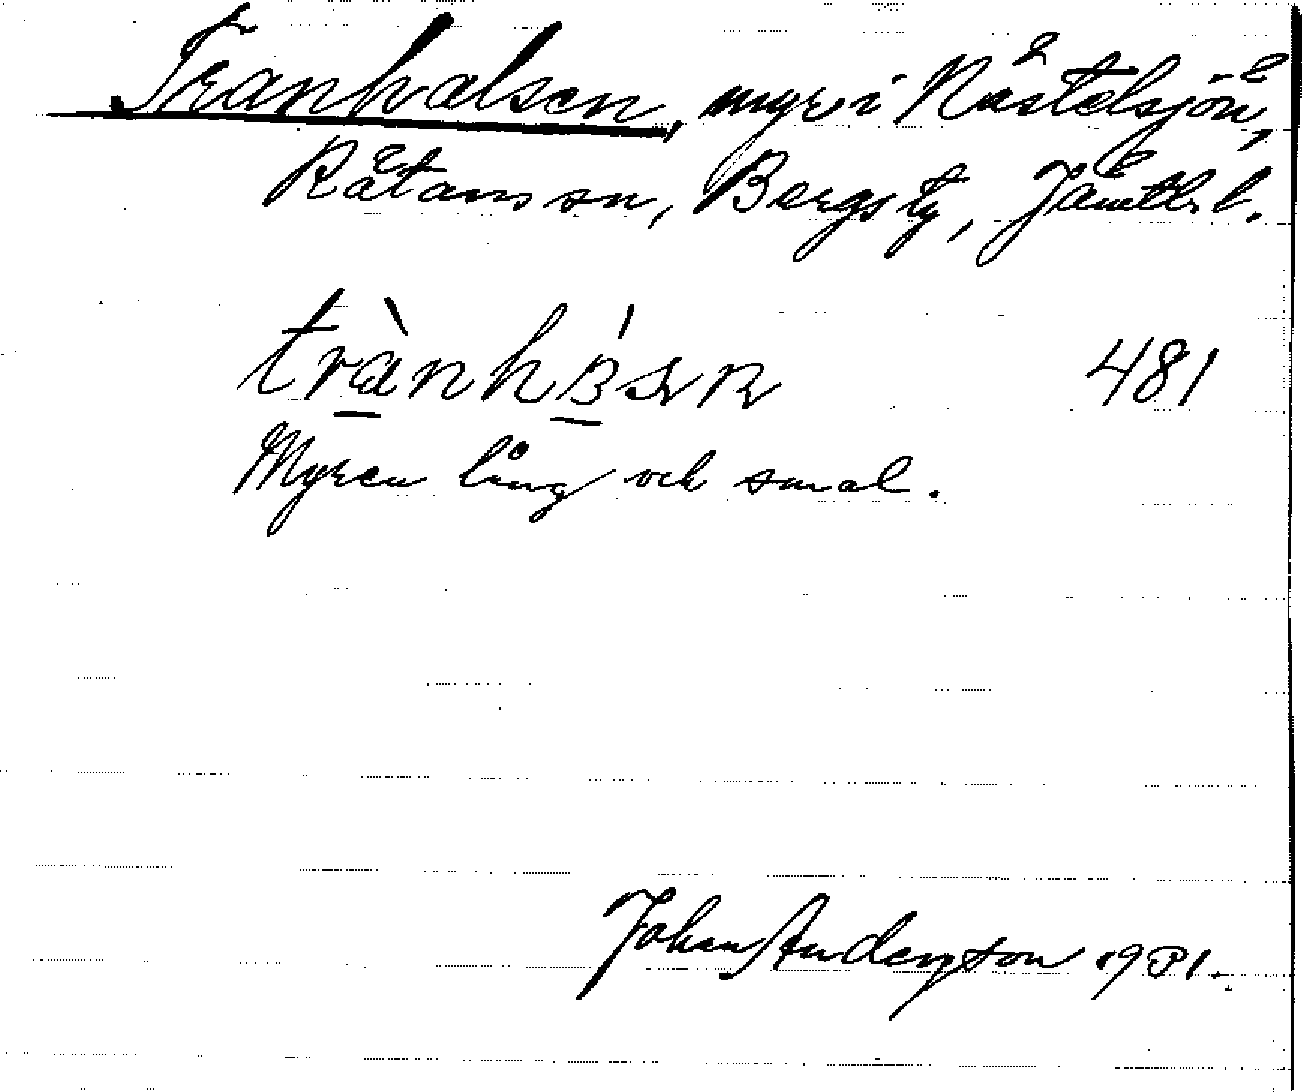 Tranhalsen, myr i Nästelsjön,
Rätans sn, Bergs tg, Jämtl. l.
trànhásn 481
Myren lång och smal.
Johan Anderzton 1931.